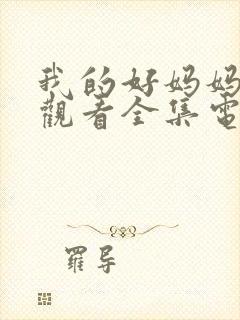 我的好妈妈
觀看全集電
羅导